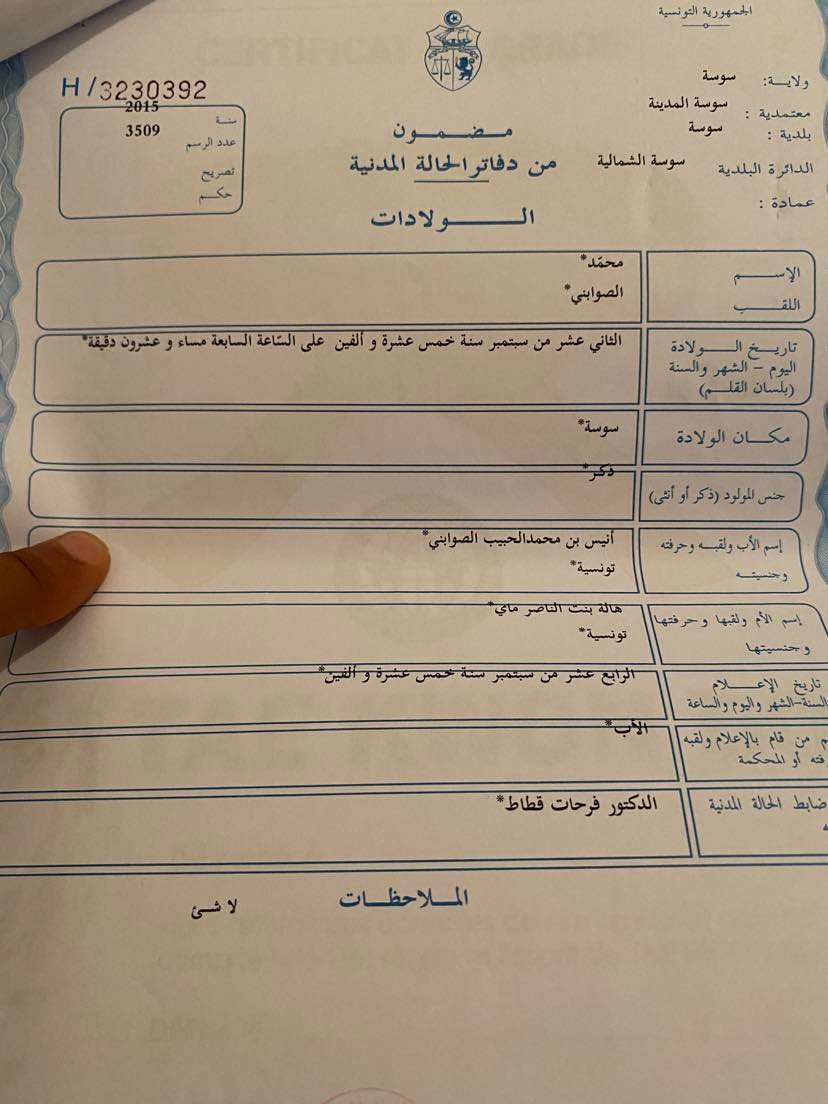 الجمهورية التونسية
ولاية: سوسة
معتمدية : سوسة المدينة
بلدية : سوسة
الدائرة البلدية سوسة الشمالية
عمادة :
H/3230392
سنة 2015
عدد الرسم 3509
تصريح
حكم
مضمون
من دفاتر الحالة المدنية
الولادات
الإسم محمّد*
اللقب الصوابني*
تاريخ الولادة الثاني عشر من سبتمبر سنة خمس عشرة و ألفين على السّاعة السابعة مساء و عشرون دقيقة*
اليوم - الشهر والسنة
(بلسان القلم)
مكان الولادة سوسة*
جنس المولود (ذكر أو أنثى) ذكر*
إسم الأب ولقبه وحرفته أنيس بن محمدالحبيب الصوابني*
وجنسيته تونسية*
إسم الأم ولقبها وحرفتها هالة بنت الناصر ماي*
وجنسيتها تونسية*
تاريخ الإعلام الرابع عشر من سبتمبر سنة خمس عشرة و ألفين*
السنة-الشهر واليوم والساعة
من قام بالإعلام ولقبه الأب*
أو المحكمة
ضابط الحالة المدنية الدكتور فرحات قطاط*
الملاحظات
لا شئ